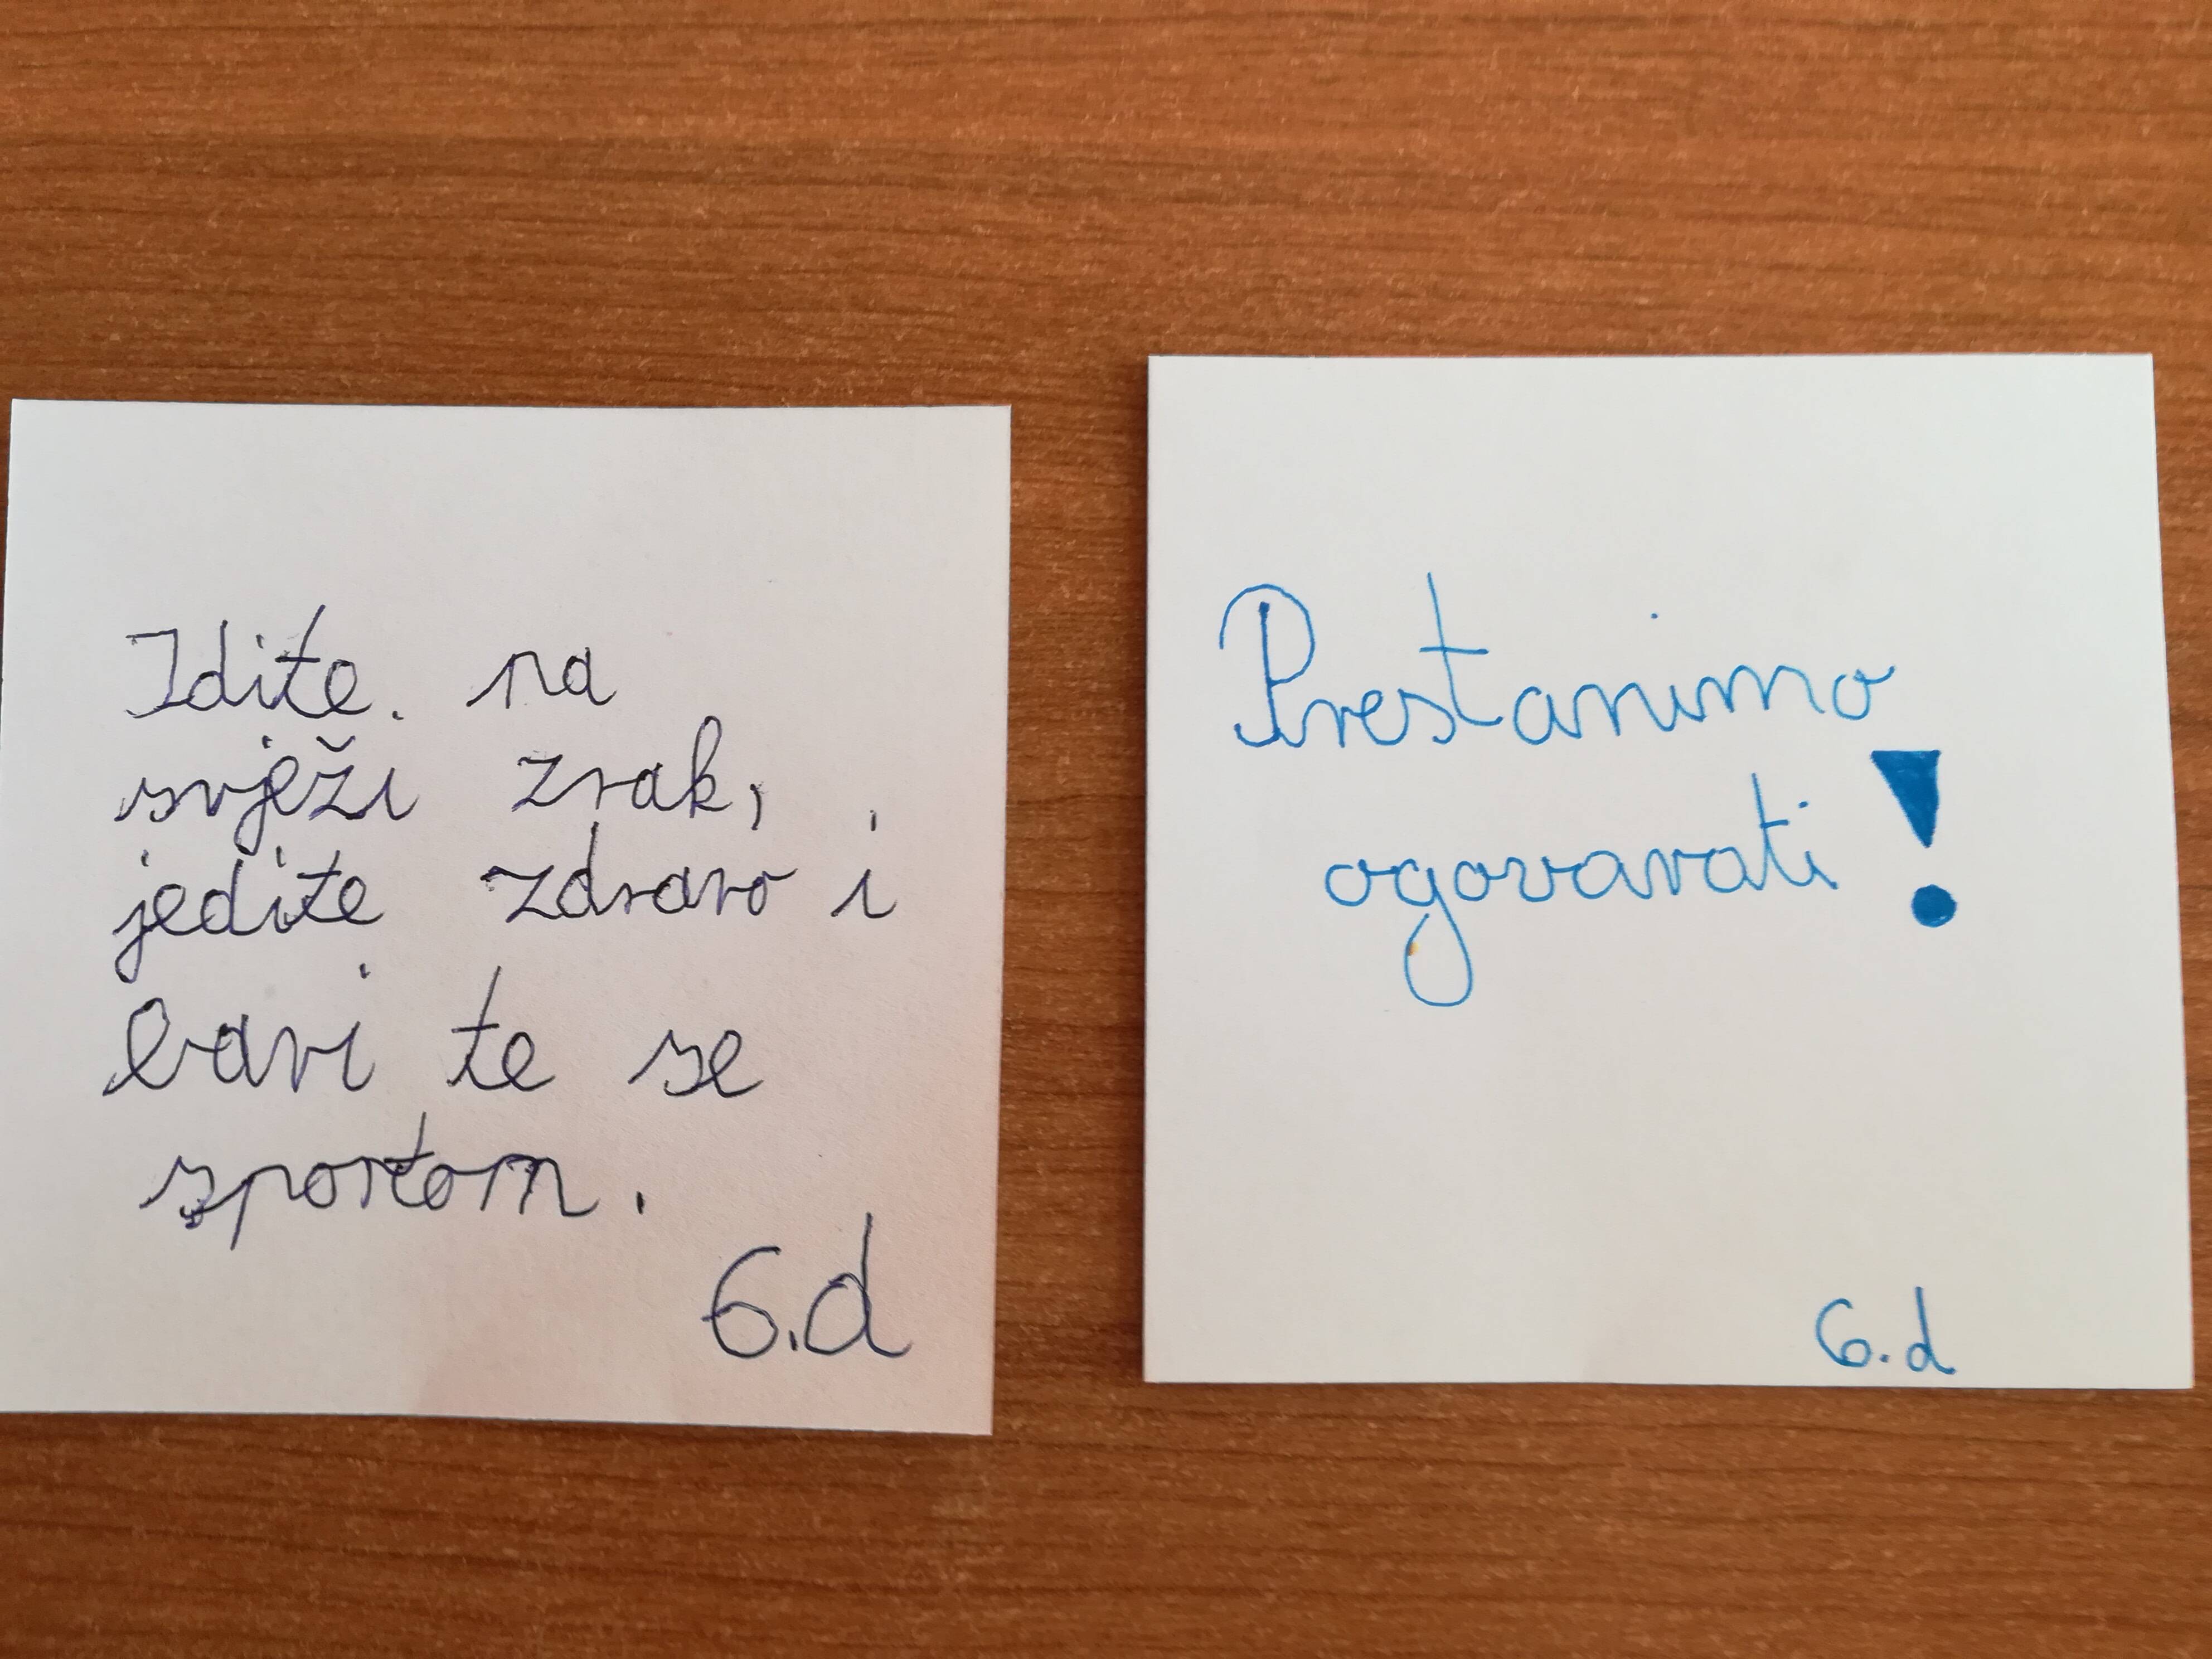 Idite. na
svježi zrak,
jedite zdravo i
bavi te se
sportom.
6.d
Prestanimo
ogovarati!
6.d